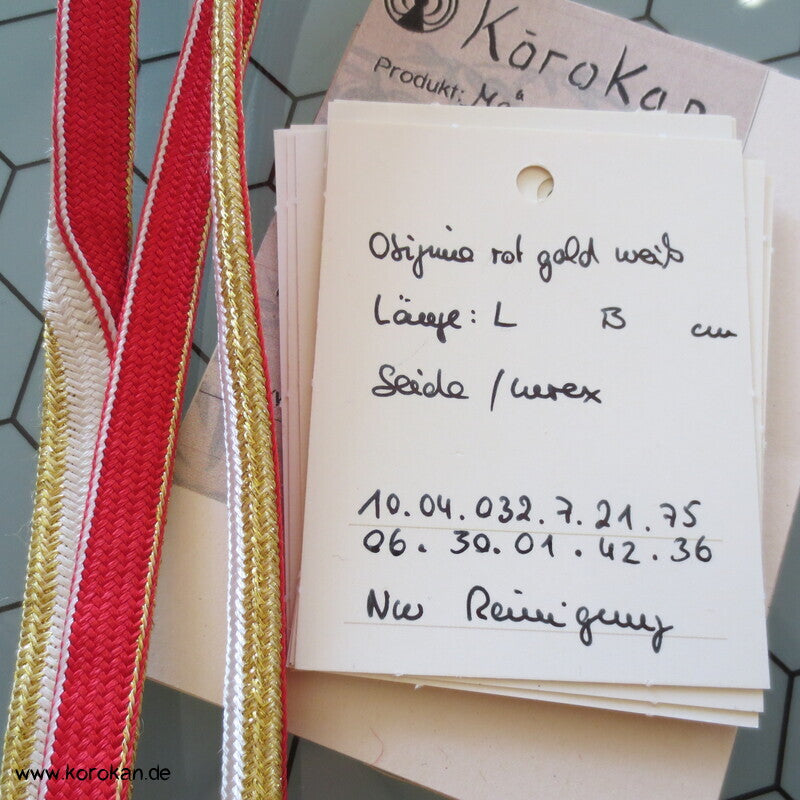 KōroKan
Produkt:
Obijime rot gold weiß
Länge: L B cm
Seide / Lurex
10.04.032.7.21.75
06.30.01.42.36
Nur Reinigung
www.korokan.de